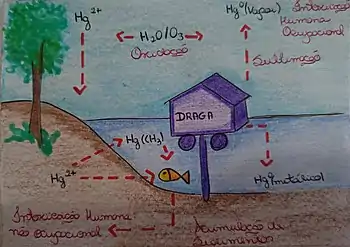 Hg²⁺
H₂O/O₃
Oxidação
Hg⁰(Vapor)
Intoxicação
Humana
Ocupacional
Sublimação
DRAGA
Hg(CH₃)
Hg²⁺
Hg⁰metálico
Intoxicação Humana
não Ocupacional
Acumulação de
Sedimentos